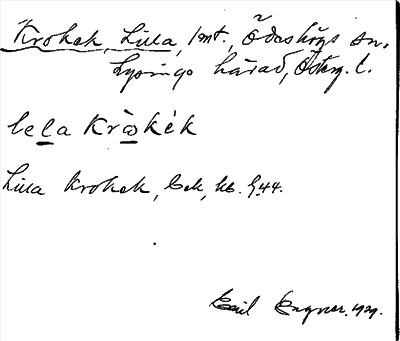 Krokek, Lilla, 1 mt., Ödeshögs sn.
Lysings härad, Österg. l.
lela Kròkék
Lilla Krokek, Eek, kb. f. 44.
Emil Engner. 1929.